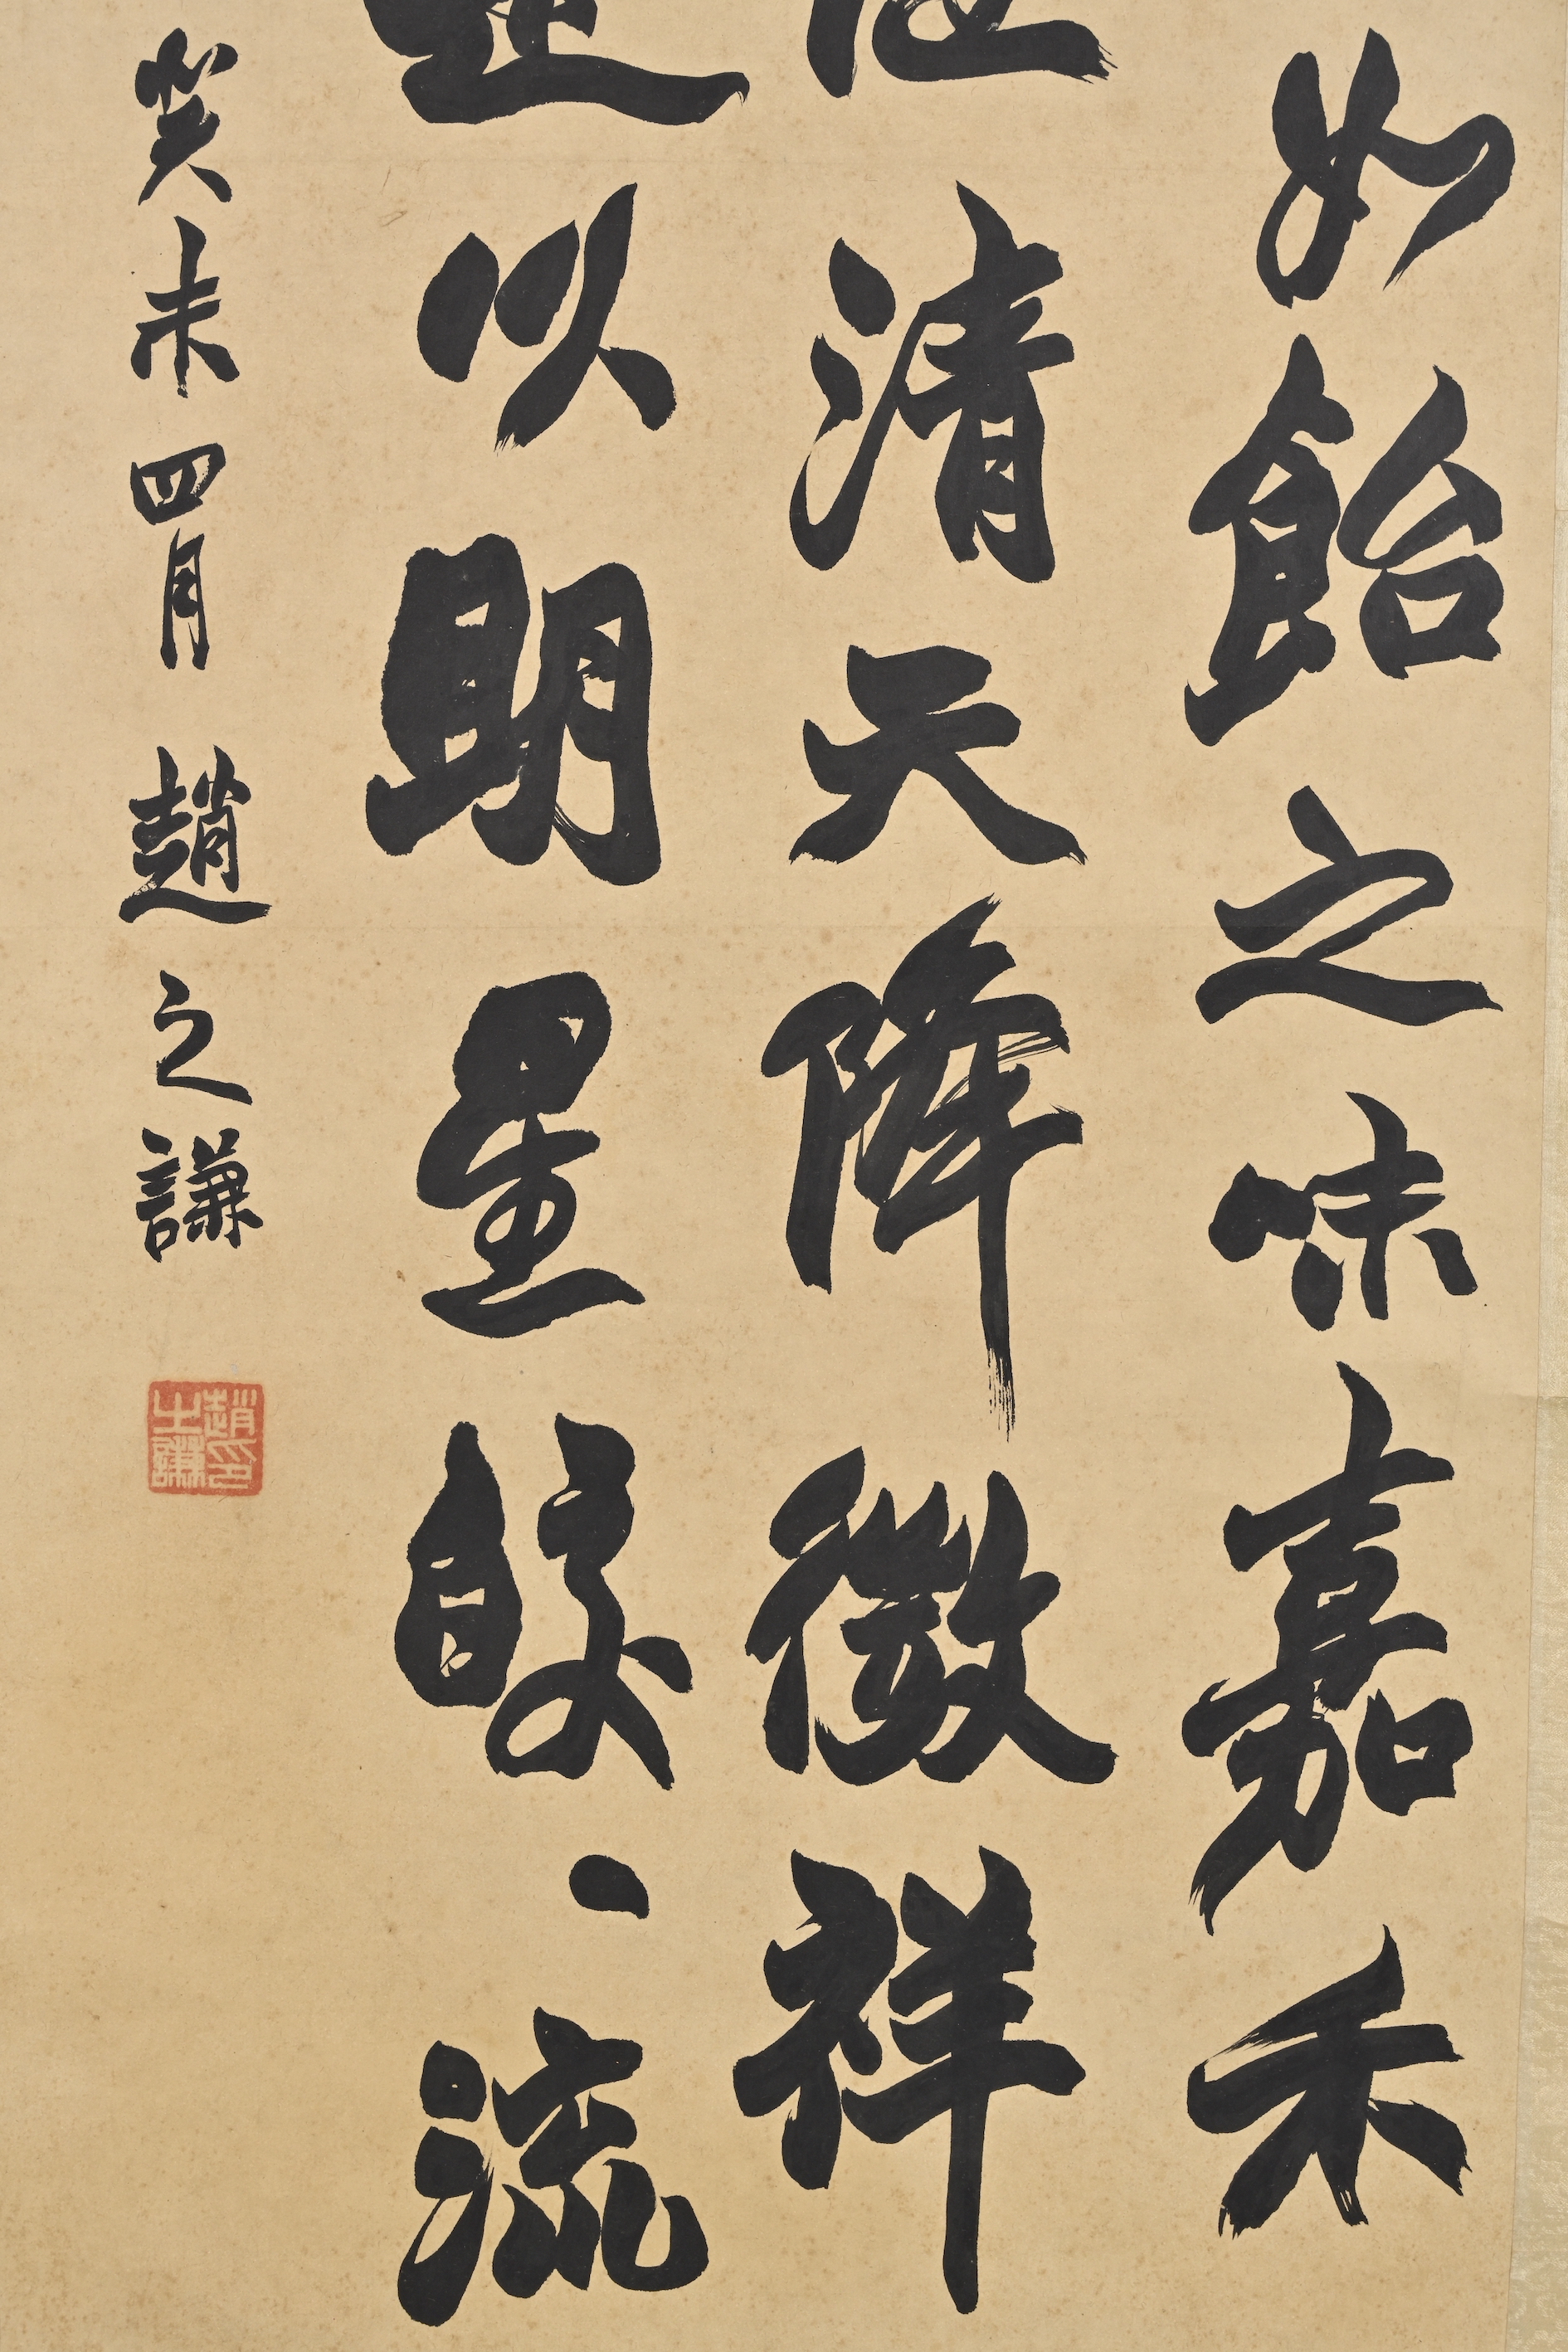 如飴之味嘉禾
清天降徵祥
以明星皎、流
癸未四月 趙之謙
趙之謙印